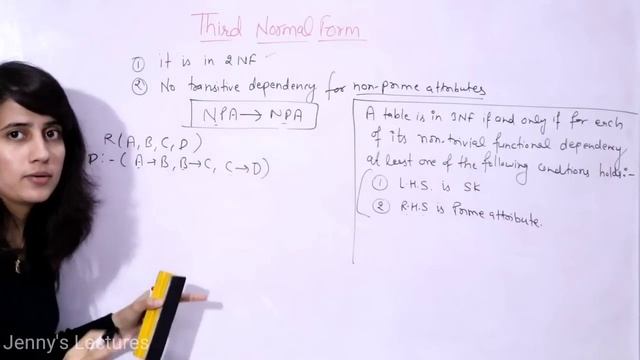 Third Normal Form
① it is in 2NF
② No transitive dependency for non-prime attributes
NPA → NPA
R(A, B, C, D)
D:- (A→B, B→C, C→D)
A table is in 3NF if and only if for each
of its non-trivial functional dependency
at least one of the following conditions holds:-
① L.H.S. is SK
② R.H.S is Prime attribute.
Jenny's Lectures